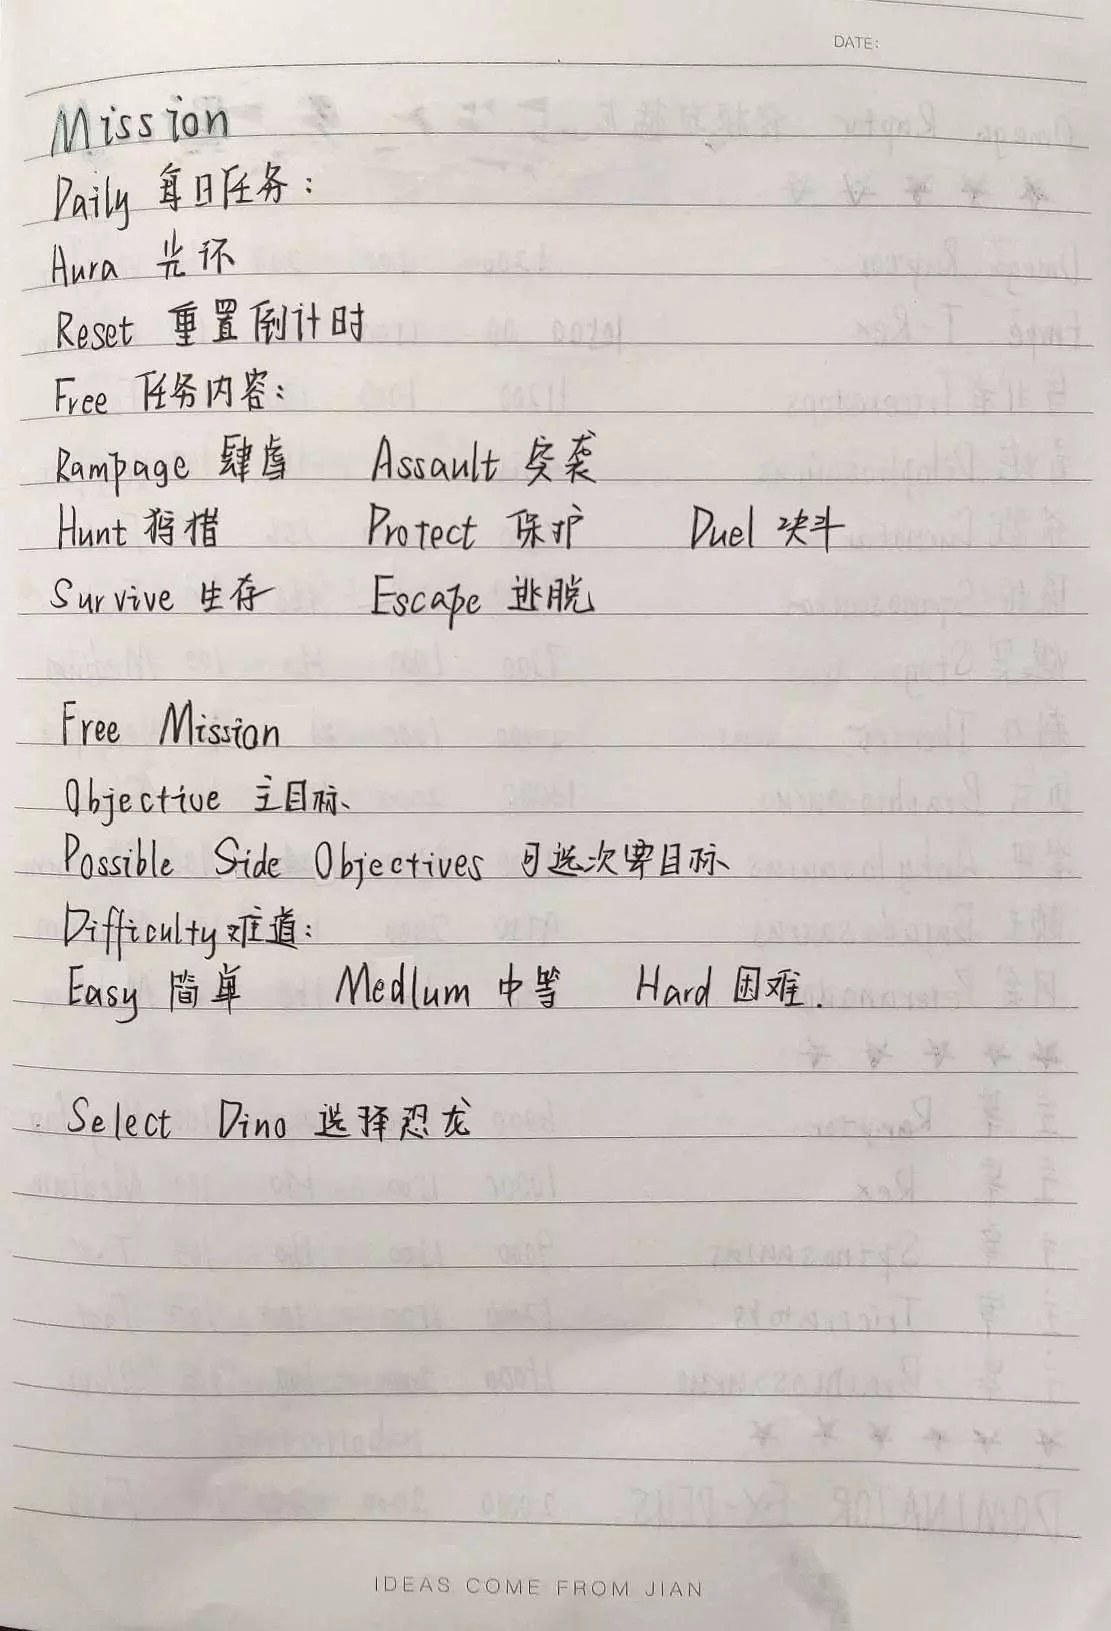 DATE:
Mission
Daily 每日任务:
Aura 光环
Reset 重置倒计时
Free 任务内容:
Rampage 肆虐 Assault 突袭
Hunt 狩猎 Protect 保护 Duel 决斗
Survive 生存 Escape 逃脱
Free Mission
Objective 主目标、
Possible Side Objectives 可选次要目标
Difficulty 难道:
Easy 简单 Medlum 中等 Hard 困难.
Select Dino 选择恐龙
IDEAS COME FROM JIAN